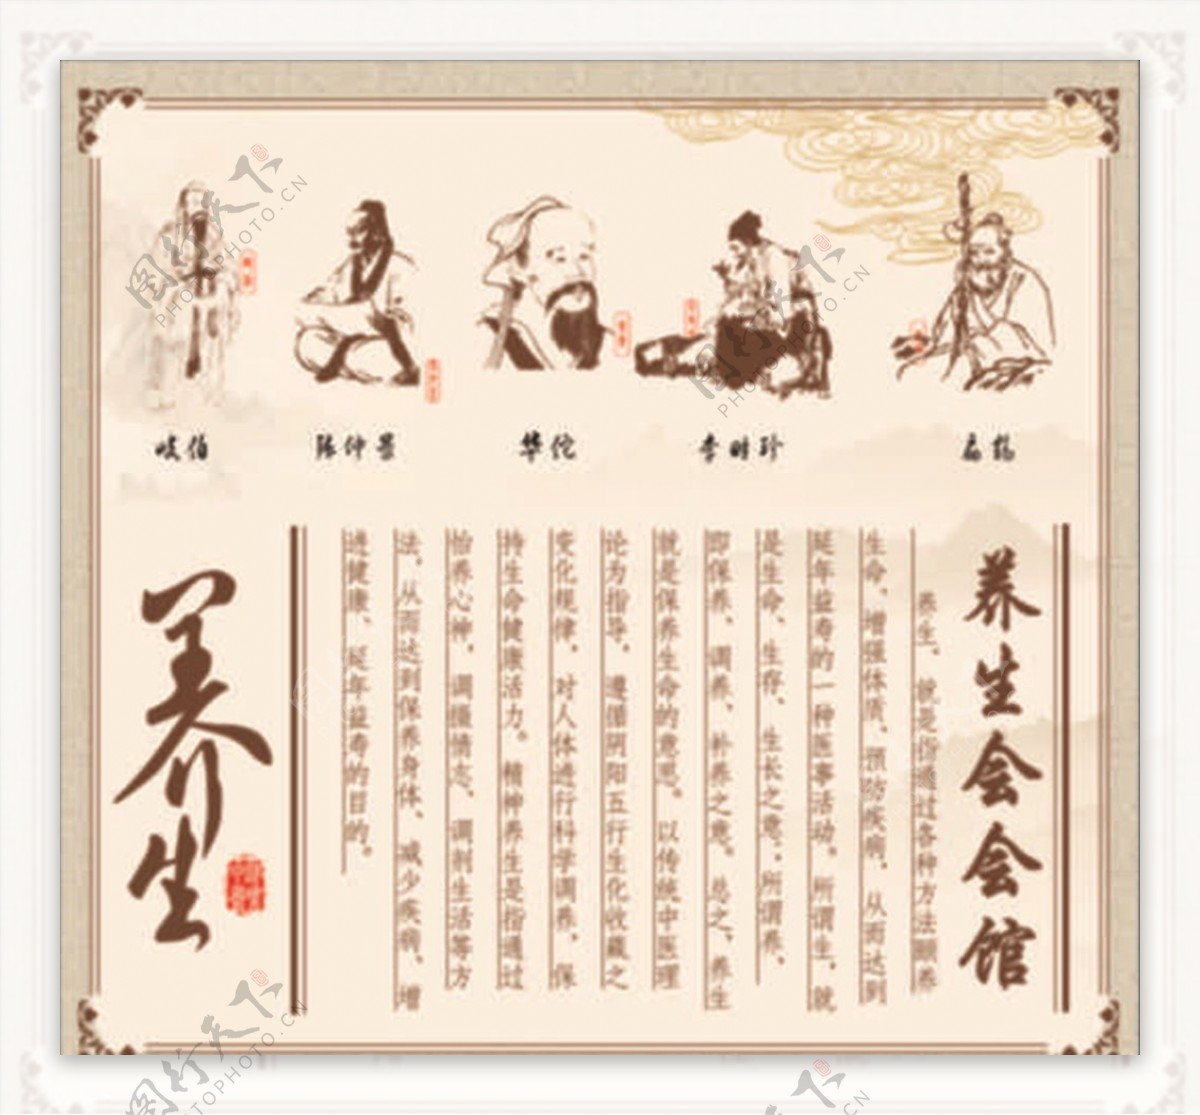 岐伯
张仲景
华佗
李时珍
扁鹊
养生会会馆
养生,就是指通过各种方法颐养
生命、增强体质、预防疾病,从而达到
延年益寿的一种医事活动。所谓生,就
是生命、生存、生长之意;所谓养,
即保养、调养、补养之意。总之,养生
就是保养生命的意思。以传统中医理
论为指导,遵循阴阳五行生化收藏之
变化规律,对人体进行科学调养,保
持生命健康活力。精神养生是指通过
怡养心神,调摄情志、调剂生活等方
法,从而达到保养身体、减少疾病、增
进健康、延年益寿的目的。
养生
图行天下
PHOTOPHOTO.CN